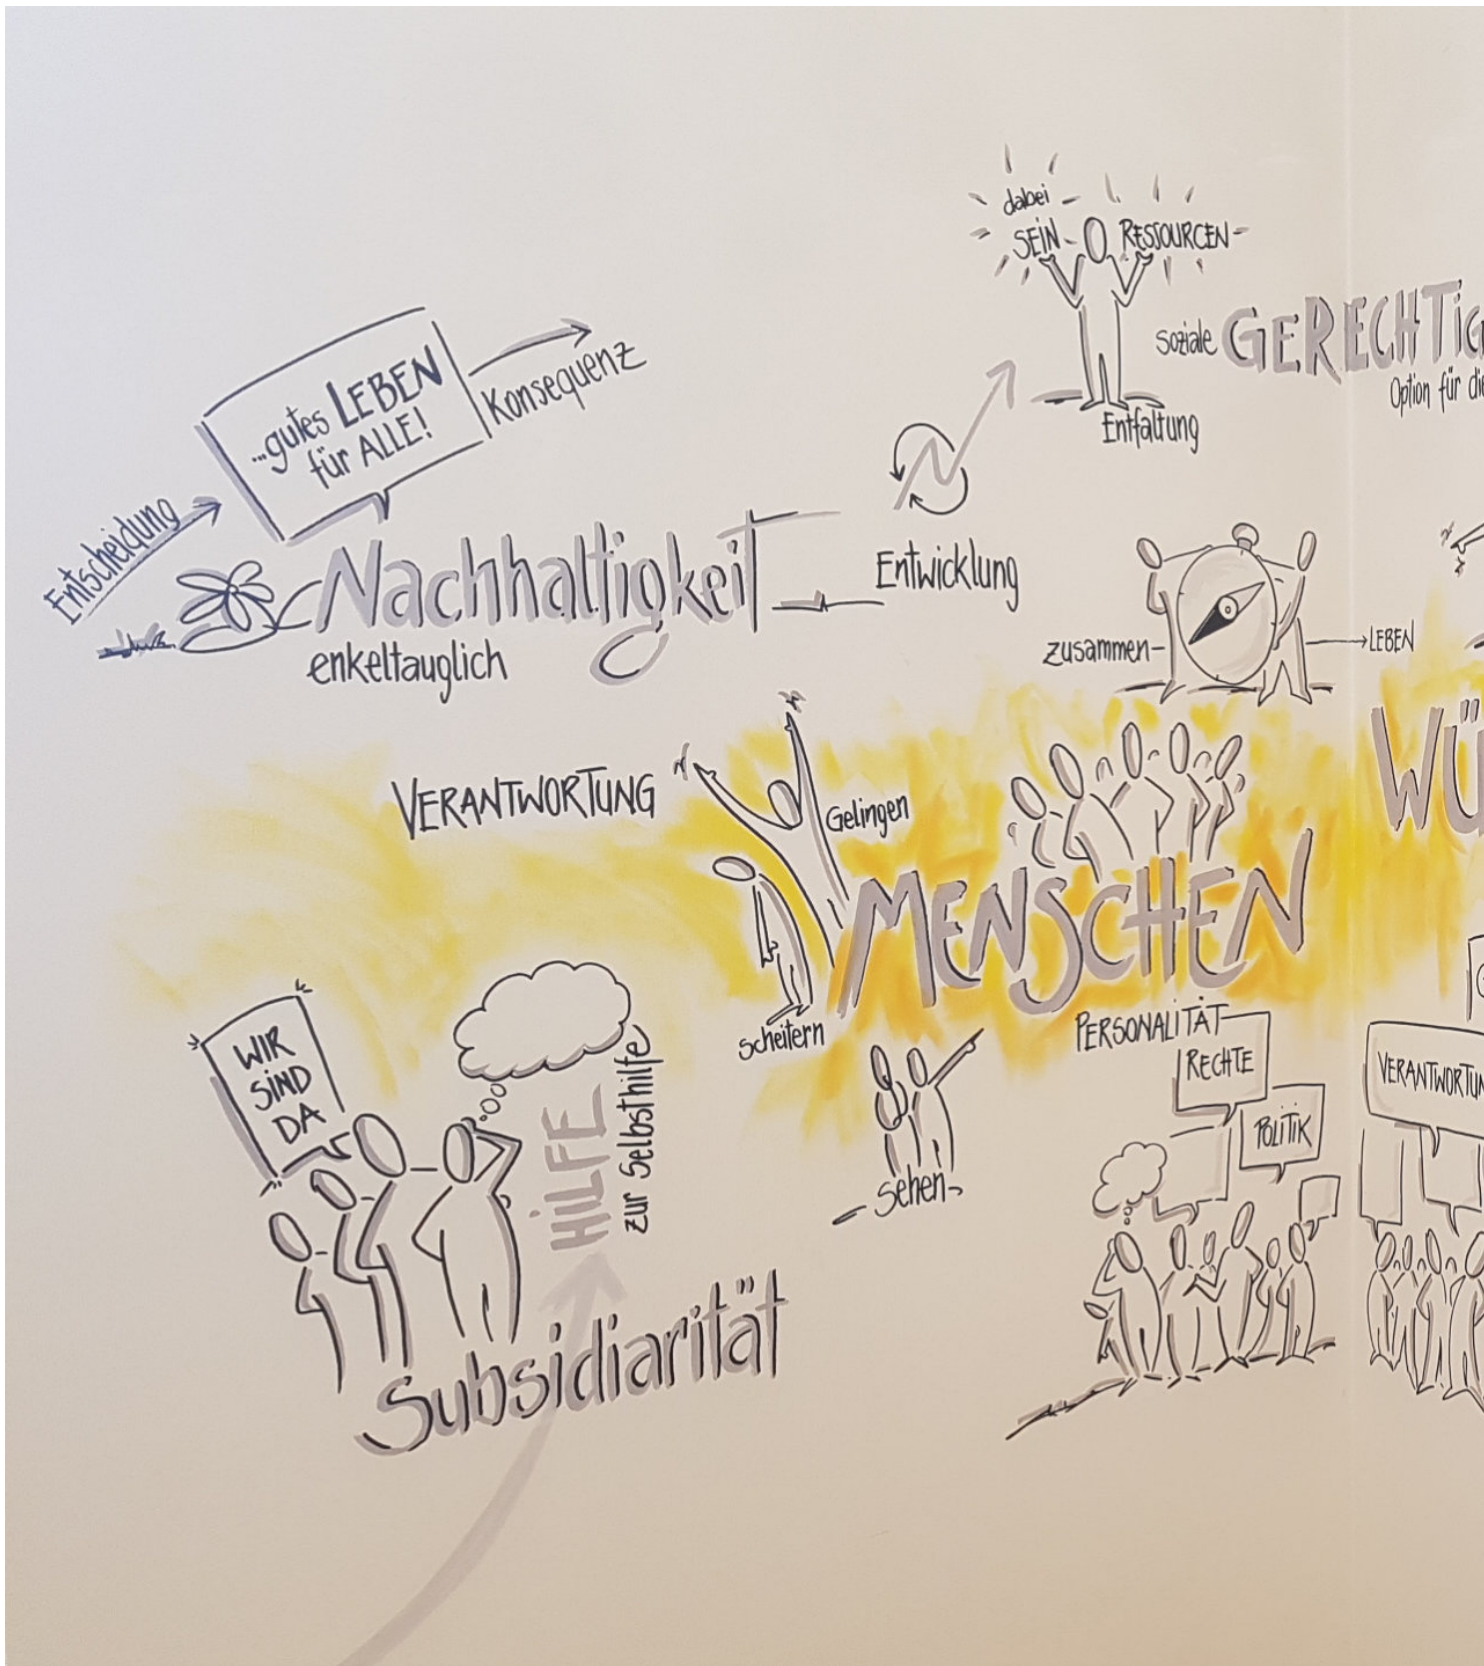 dabei
SEIN
RESSOURCEN
soziale GERECHTIG
Option für die
Entfaltung
...gutes LEBEN
für ALLE!
Konsequenz
Entscheidung
Nachhaltigkeit
enkeltauglich
Entwicklung
zusammen
LEBEN
WÜ
VERANTWORTUNG
Gelingen
MENSCHEN
scheitern
PERSONALITÄT
RECHTE
POLITIK
VERANTWORTUN
sehen
WIR
SIND
DA
HILFE
zur Selbsthilfe
Subsidiarität